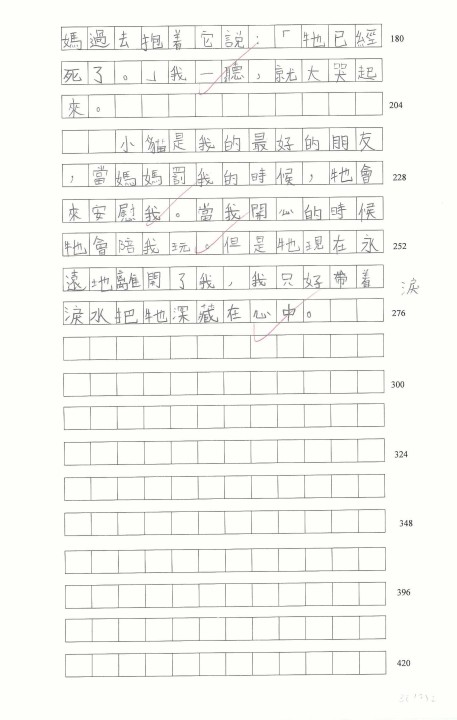 媽過去抱着它說：「牠已經 180
死了。」我一聽，就大哭起
來。 204
小貓是我的最好的朋友
，當媽媽罰我的時候，牠會 228
來安慰我。當我開心的時候
牠會陪我玩。但是牠現在永 252
遠地離開了我，我只好帶着
淚
淚水把牠深藏在心中。 276
300
324
348
396
420